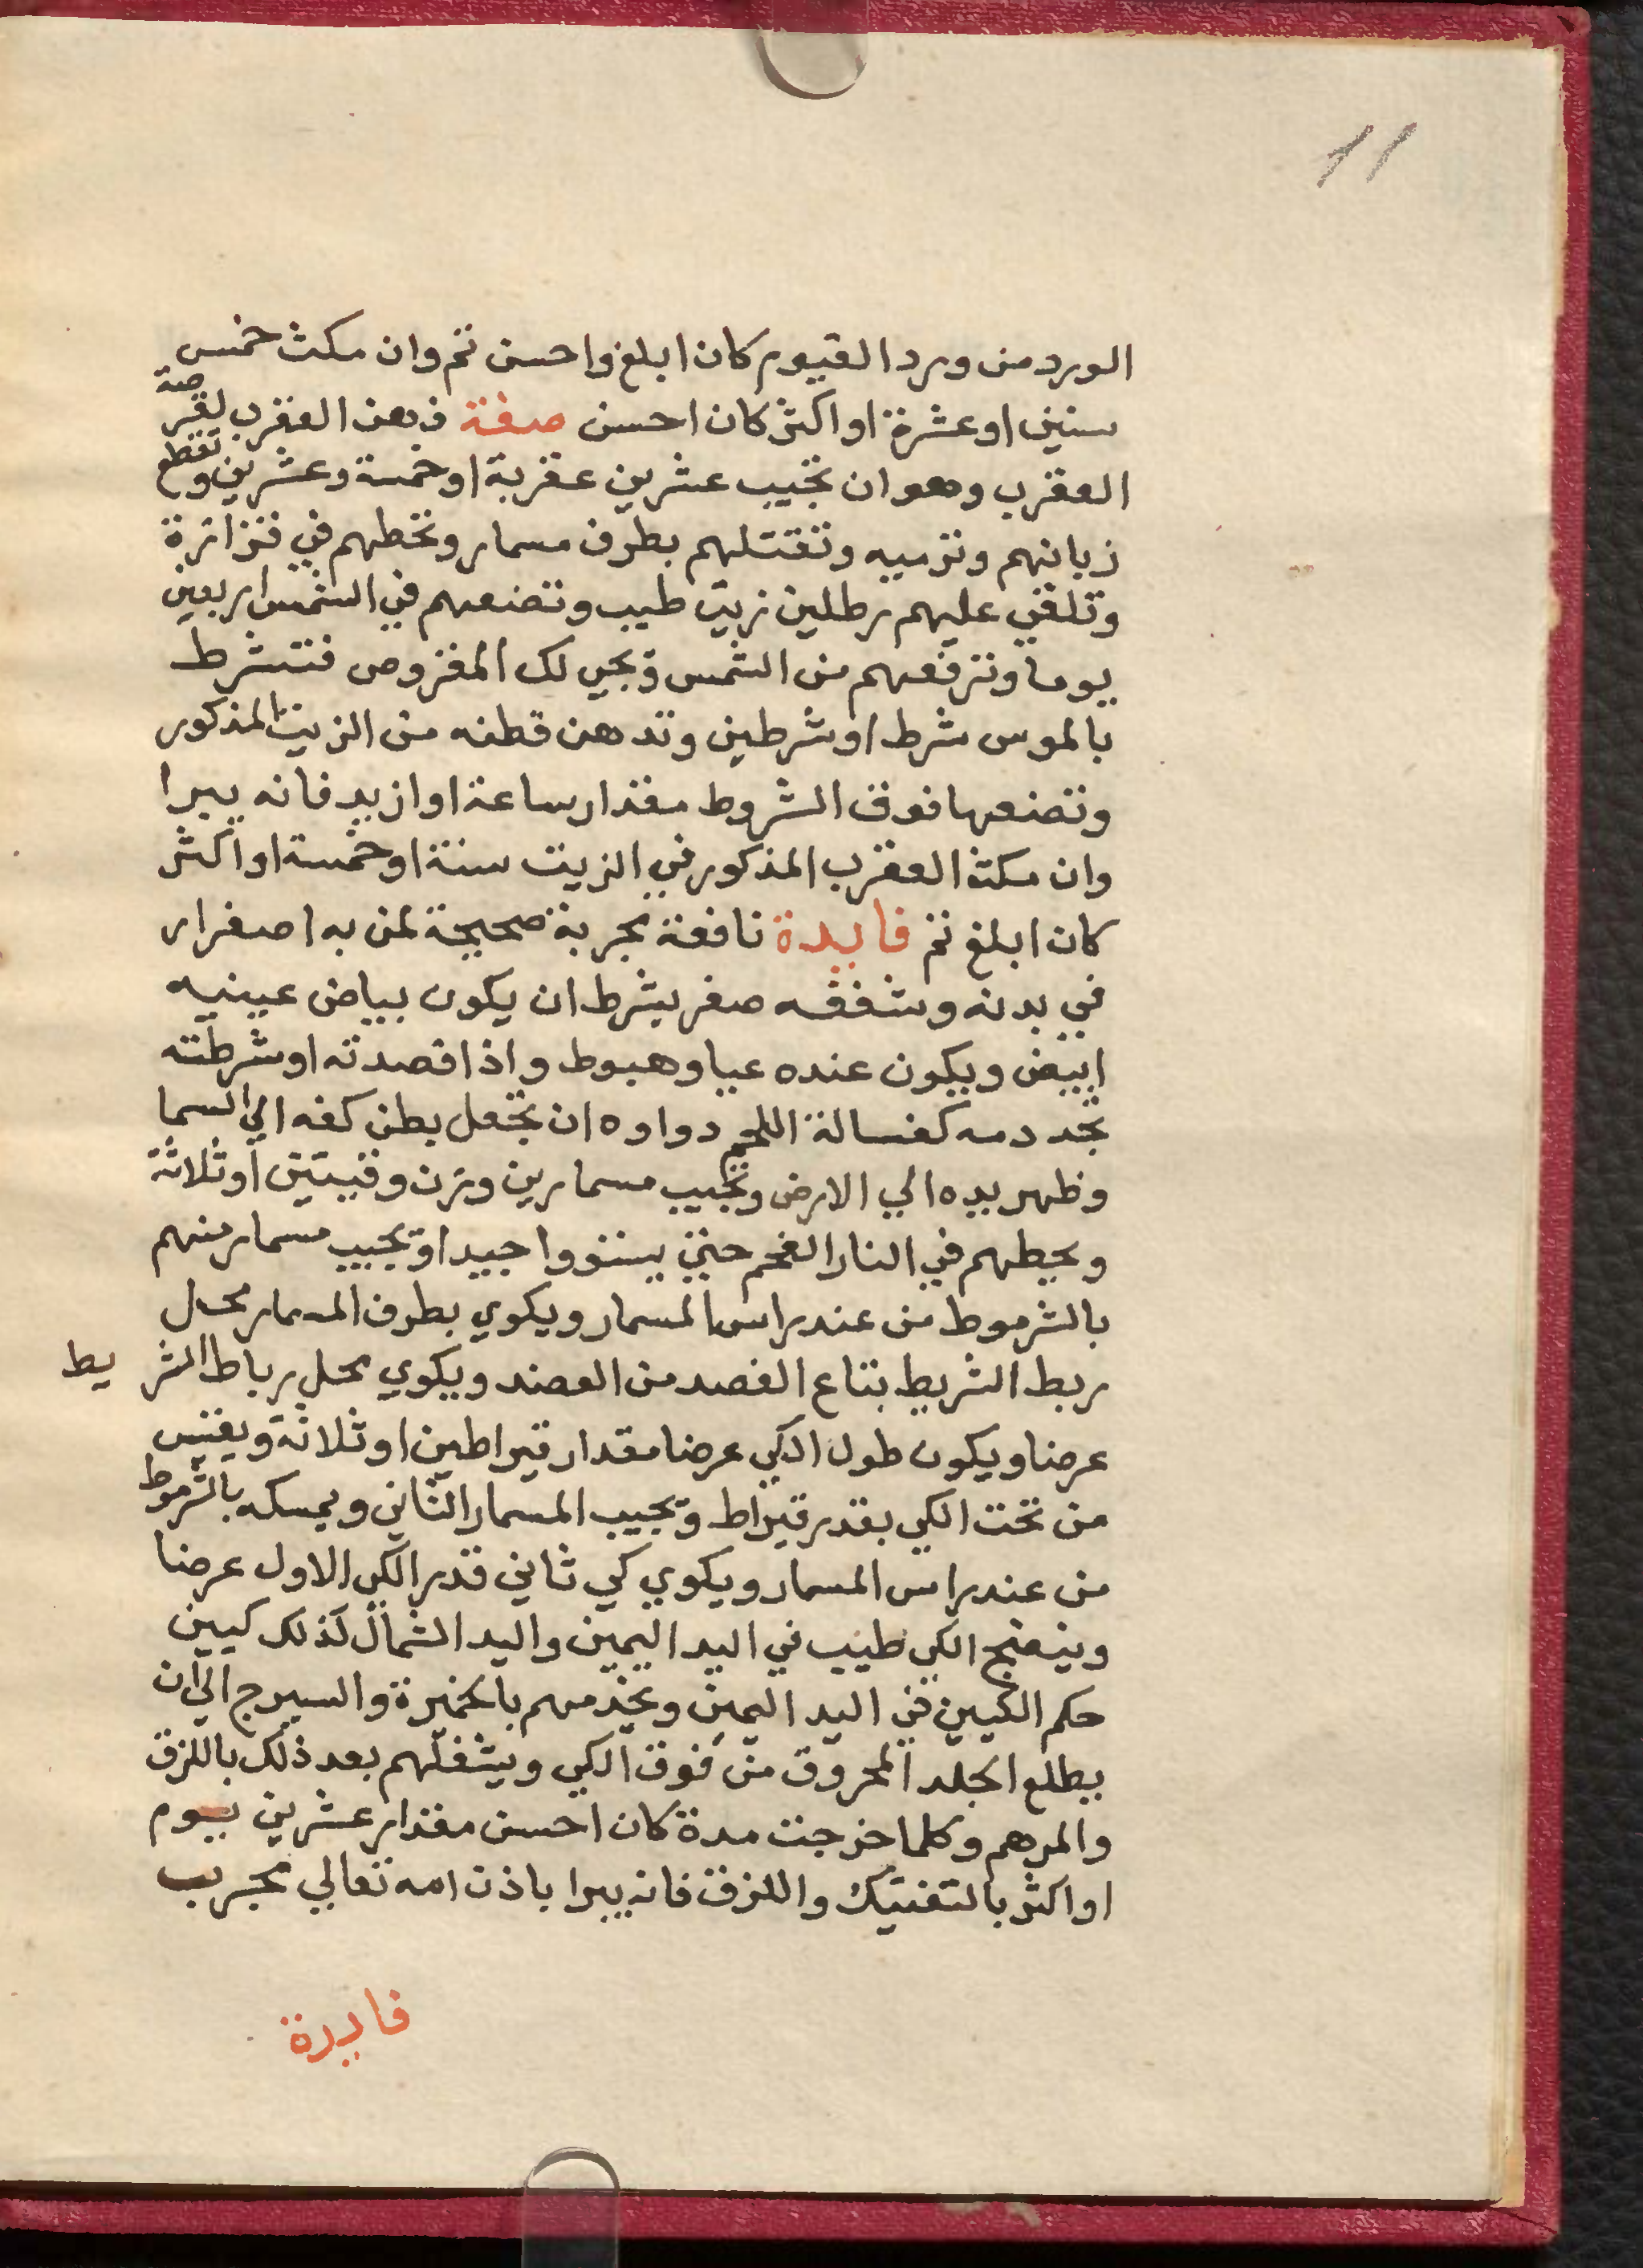 11
الورد من ورد الفيوم كان ابلغ واحسن تم وان مكث خمس
سنين او عشرة او اكثر كان احسن صفة دهن العقرب لقرصة
العقرب وهو ان تجيب عشرين عقربة او خمسة وعشرين وتقطع
زبانهم وترميه وتقتلهم بطرف مسمار وتحطهم في قزازة
وتلقي عليهم رطلين زيت طيب وتضعهم في الشمس اربعين
يوما وترفعهم من الشمس ويجي لك المقروص فتشرط
بالموس شرط او شرطين وتدهن قطنه من الزيت المذكور
وتضعها فوق الشروط مقدار ساعة او ازيد فانه يبرا
وان مكث العقرب المذكور في الزيت سنة او خمسة او اكثر
كان ابلغ تم فايدة نافعة مجربة صحيحة لمن به اصفرار
في بدنه وشففه صفر بشرط ان يكون بياض عينيه
ابيض ويكون عنده عيا وهبوط واذا فصدته او شرطته
تجد دمه كغسالة اللحم دواوه ان تجعل بطن كفه الي السما
وظهر يده الي الارض وتجيب مسمارين وزن وقيتين او ثلاثة
ويحطهم في النار الفحم حتي يستووا جيدا ويجيب مسمار منهم
بالشرموط من عند راس المسمار ويكوي بطرف المسمار محل
ربط الشريط بتاع الفصد من العضد ويكوي محل رباط الشريط
عرضا ويكون طول الكي عرضا مقدار قيراطين او ثلاثة ويقيس
من تحت الكي بقدر قيراط ويجيب المسمار الثاني ويمسكه بالشرموط
من عند راس المسمار ويكوي كي ثاني قدر الكي الاول عرضا
وينضج الكي طيب في اليد اليمين واليد الشمال كذلك كيين
حكم الكيين في اليد اليمين ويخدمهم بالخميرة والسيرج الي ان
يطلع الجلد المحروق من فوق الكي ويشغلهم بعد ذلك باللزق
والمرهم وكلما خرجت مدة كان احسن مقدار عشرين يوم
او اكثر بالتفتيك واللزق فانه يبرا باذن الله تعالي مجرب
فايدة